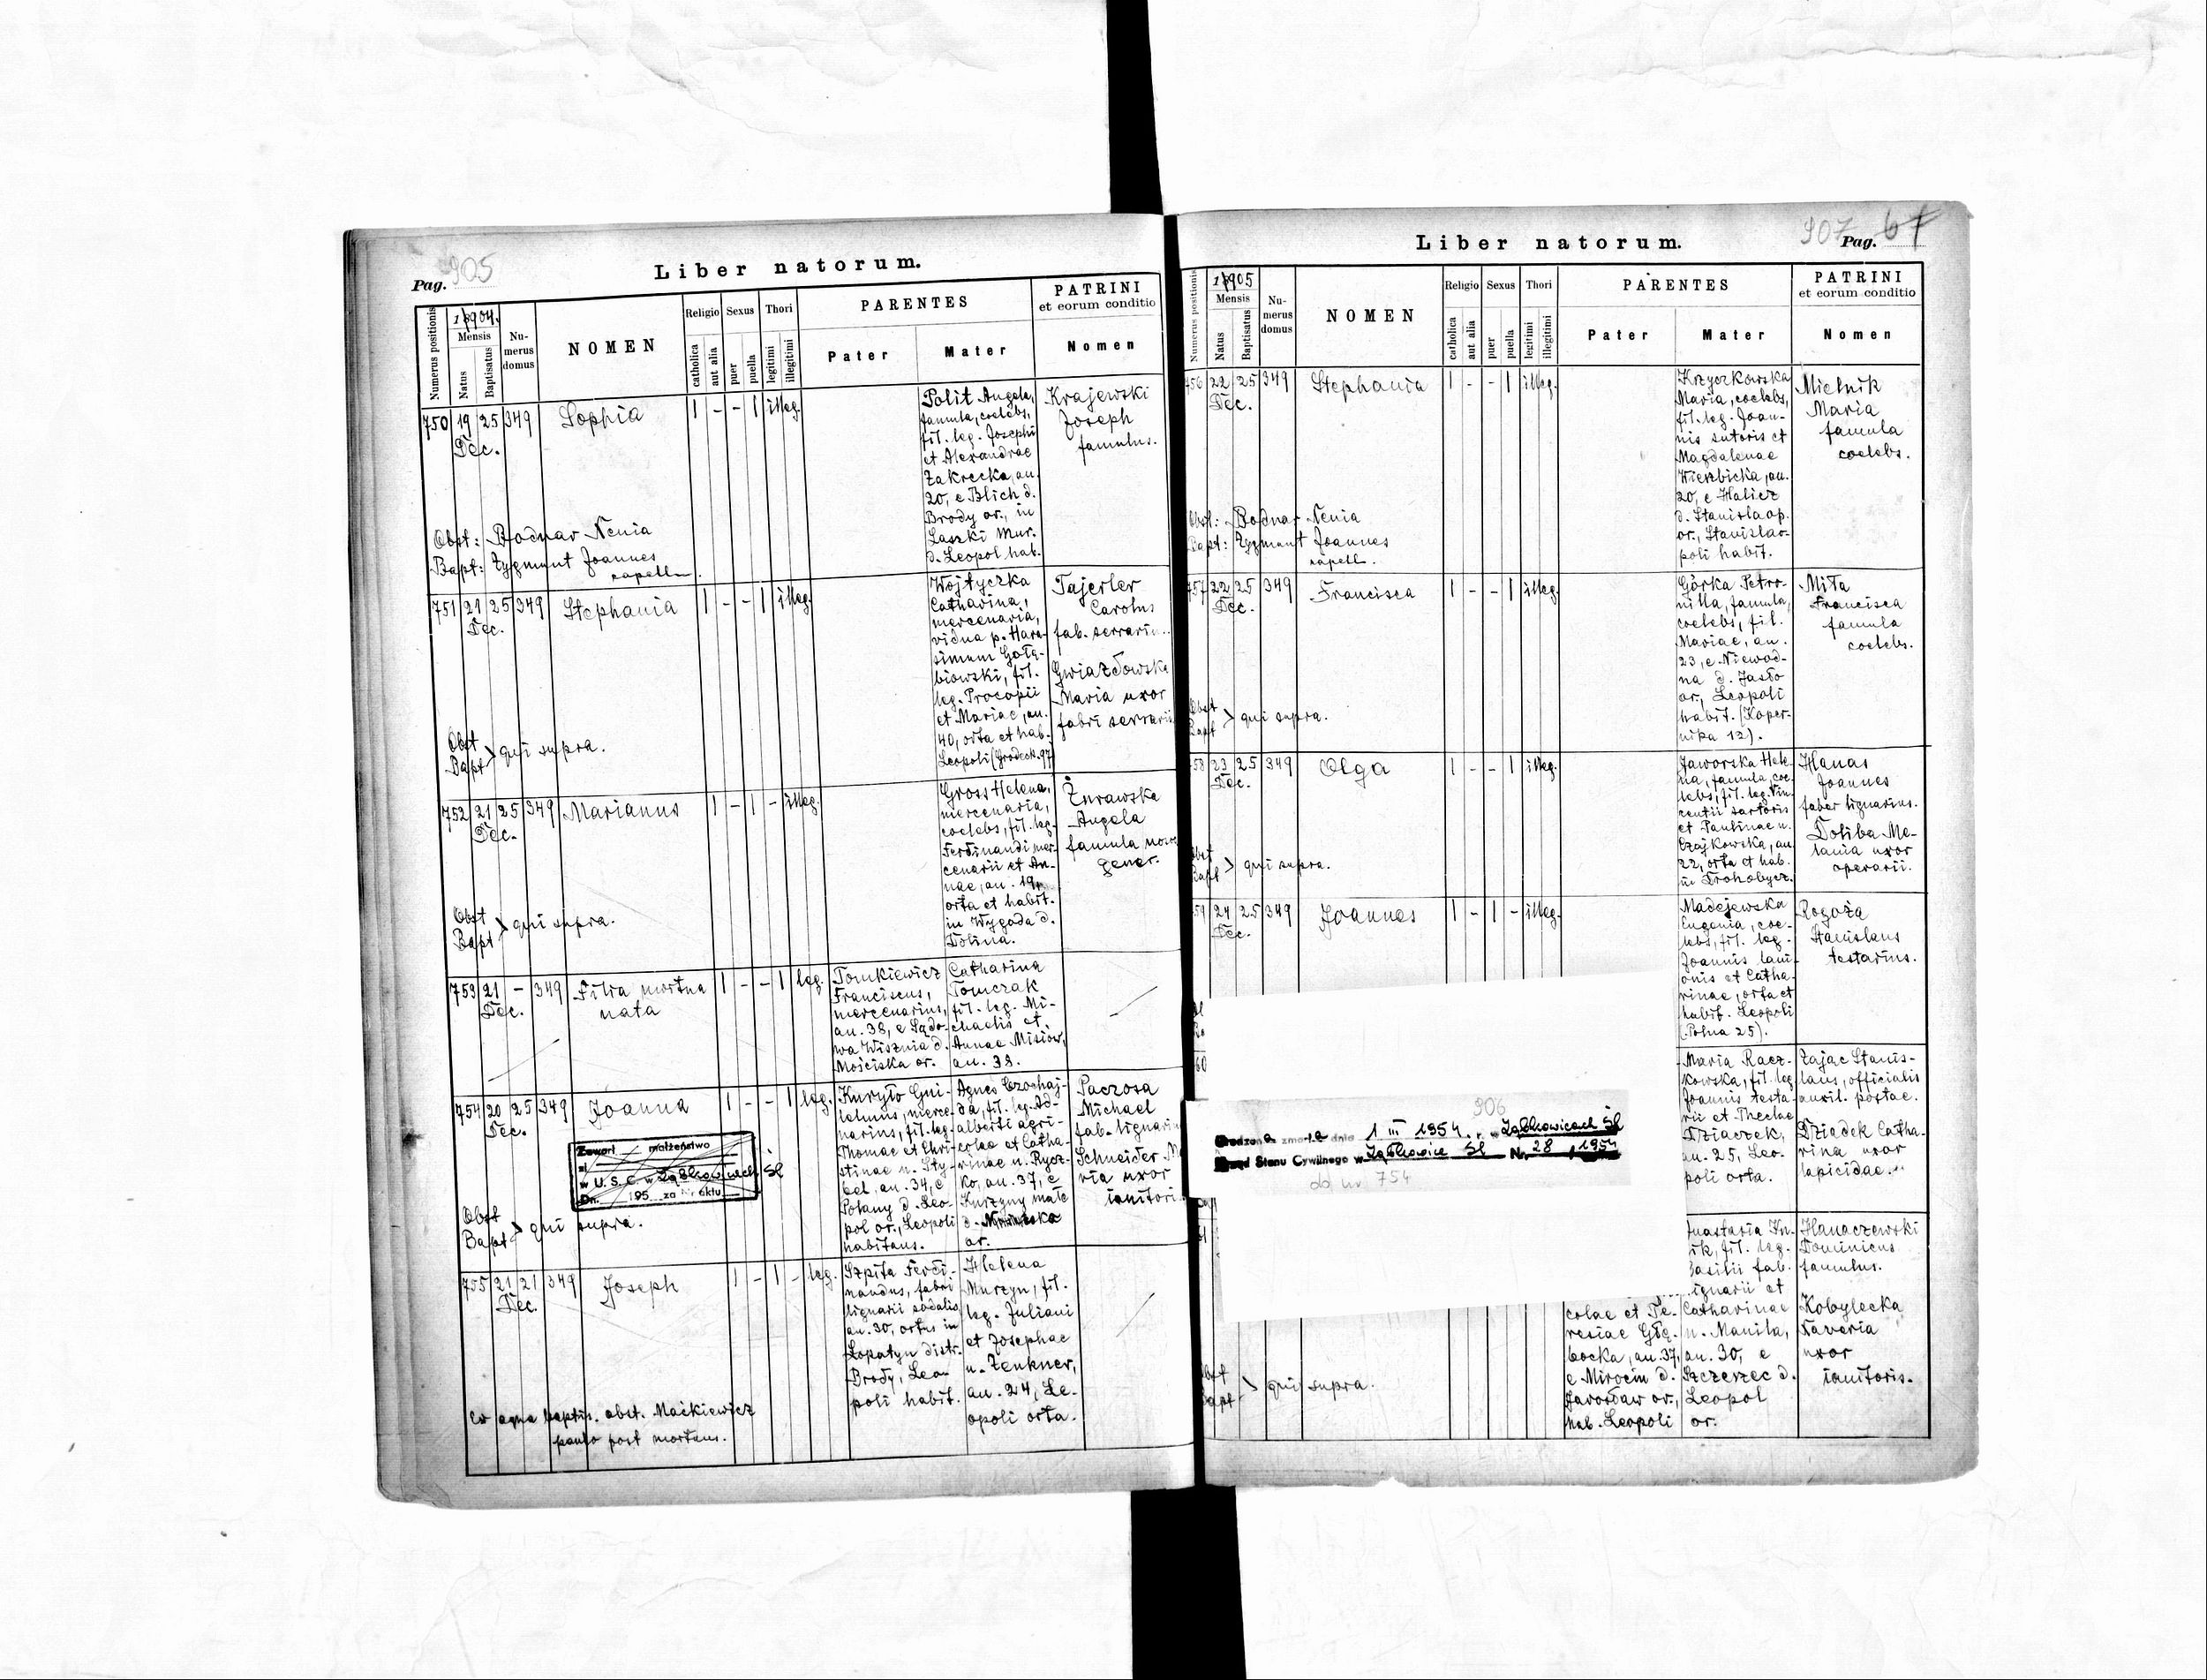 Pag. 905
Liber natorum.
Numerus positionis
1904.
Mensis
Natus
Baptisatus
Nu-
merus
domus
NOMEN
Religio
catholica
aut alia
Sexus
puer
puella
Thori
legitimi
illegitimi
PARENTES
Pater
Mater
PATRINI
et eorum conditio
Nomen
750 19 25 349 Sophia 1 - - 1 illeg.
Dec.
Polit Angela,
famula, coelebs,
fil. leg. Josephi
et Alexandrae
Zakrecka, an.
20, e Blich d.
Brody or., in
Laszki Mur.
d. Leopol hab.
Krajewski
Joseph
famulus.
Obst: Bodnar Xenia
Bapt: Zygmunt Joannes
capell.
751 21 25 349 Stephania 1 - - 1 illeg.
Dec.
Wojtyczka
Catharina,
mercenaria,
vidua p. Hara-
simum Gołę-
biowski, fil.
leg. Procopii
et Mariae, an.
40, orta et hab.
Leopoli (Grodeck. 97)
Tajerler
Carolus
fab. serrariu..
Gwiazdowska
Maria uxor
fabri serrarii
Obst
Bapt > qui supra.
752 21 25 349 Marianus 1 - 1 - illeg.
Dec.
Gross Helena,
mercenaria,
coelebs, fil. leg.
Ferdinandi mer-
cenarii et An-
nae, an. 19,
orta et habit.
in Wygoda d.
Dolina.
Żurawska
Angela
famula
Obst
Bapt > qui supra.
753 21 - 349 Filia mortua 1 - - 1 leg.
Dec. nata
Tomkiewicz
Franciscus,
mercenarius,
an. 38, e Sądo-
wa Wisznia d.
Mościska or.
Catharina
Tomczak
fil. leg. Mi-
chaelis et
Annae Misiow,
an. 38.
754 20 25 349 Joanna 1 - - 1 leg.
Dec.
Kuryło Gui-
lelmus, merce-
narius, fil. leg.
Thomae et Chri-
stinae n. Sty-
bel, an. 34, e
Polany d. Leo-
pol or., Leopoli
habitans.
Agnes Czochaj-
da, fil. leg. Ad-
alberti agri-
colae et Catha-
rinae n. Rycz-
ko, an. 37, e
Kurzyny małe
d.
or.
Paczosa
Michael
fab. lignariu
Schneider M
ria uxor
ianitori.
Zawarł małżeństwo
w U. S. C. w Ząbkowicach Śl
Dn. 195 za Nr aktu
Obst
Bapt > qui supra.
755 21 21 349 Joseph 1 - 1 - leg.
Dec.
Szpila Ferdi-
nandus, fabri
lignarii sodalis
an. 30, ortus in
Łopatyn distr.
Brody, Leo-
poli habit.
Helena
Murzyn, fil.
leg. Juliani
et Josephae
n. Zenkner,
an. 24, Le-
opoli orta.
Ex aqua baptis. obst. Maćkiewicz
paulo post mortuus.
907 Pag. 67
Liber natorum.
Numerus positionis
1905
Mensis
Natus
Baptisatus
Nu-
merus
domus
NOMEN
Religio
catholica
aut alia
Sexus
puer
puella
Thori
legitimi
illegitimi
PARENTES
Pater
Mater
PATRINI
et eorum conditio
Nomen
756 22 25 349 Stephania 1 - - 1 illeg.
Dec.
Krzyczkowska
Maria, coelebs,
fil. leg. Joan-
nis sutoris et
Magdalenae
Wierzbicka, an.
20, e Halicz
d. Stanislaop.
or., Stanislao-
poli habit.
Mielnik
Maria
famula
coelebs.
Obst: Bodnar Xenia
Bapt: Zygmunt Joannes
capell.
757 22 25 349 Francisca 1 - - 1 illeg.
Dec.
Górka Petro-
nilla, famula,
coelebs, fil.
Mariae, an.
23, e Niewod-
na d. Jasło
or., Leopoli
habit. (Koper-
nika 12).
Miła
Francisca
famula
coelebs.
Obst
Bapt > qui supra.
58 23 25 349 Olga 1 - - 1 illeg.
Dec.
Jaworska Hele-
na, famula, coe-
lebs, fil. leg. Vin-
centii sartoris
et Paulinae n.
Czajkowska, an.
22, orta et hab.
in Drohobycz.
Hanas
Joannes
faber lignarius.
Doliba Me-
lania uxor
operarii.
Obst
Bapt > qui supra.
59 24 25 349 Joannes 1 - 1 - illeg.
Dec.
Madejewska
Eugenia, coe-
lebs, fil. leg.
Joannis lani-
onis et Catha-
rinae, orta et
habit. Leopoli
(Polna 25).
Rogoża
Stanislaus
testarius.
60
Maria Racz-
kowska, fil. leg.
Joannis testa-
rii et Theclae
Dziaczek,
an. 25, Leo-
poli orta.
Zając Stanis-
laus, officialis
auxil. postae.
Dziadek Catha-
rina uxor
lapicidae.
906
zmarła dnia 1 III 1954 r. w Ząbkowicach Śl
Urząd Stanu Cywilnego w Ząbkowice Śl Nr 28 1954
od nr 754
61
colae et Te-
resiae Głę-
bocka, an. 37,
e Mirocin d.
Jarosław or.,
hab. Leopoli
nastasia
ik, fil. leg.
Basilii fab.
lignarii et
Catharinae
n. Manila,
an. 30, e
Szczerzec d.
Leopol
or.
Hanaczewski
Dominicus
famulus.
Kobylecka
Xaveria
uxor
ianitoris.
Obst
Bapt > qui supra.